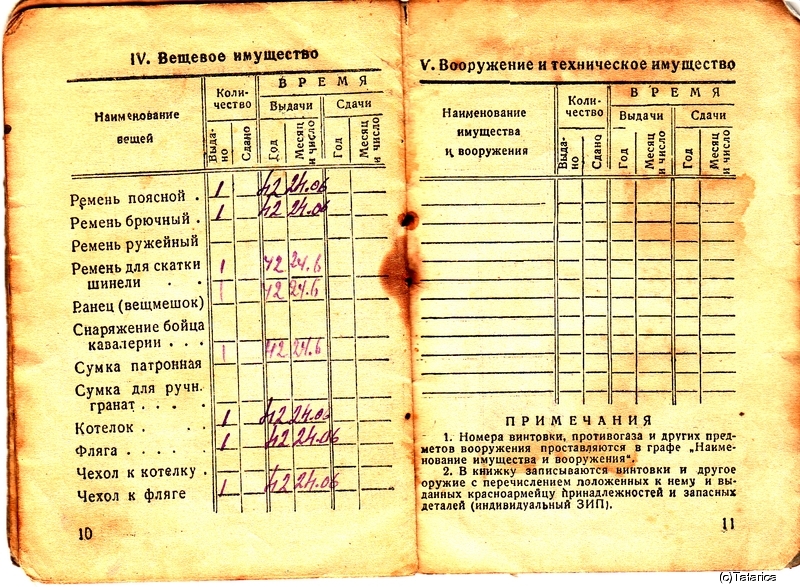 IV. Вещевое имущество
Наименование
вещей
Коли-
чество
ВРЕМЯ
Выдачи
Сдачи
Выда-
но
Сдано
Год
Месяц
и число
Год
Месяц
и число
Ремень поясной . 1 42 24.06
Ремень брючный . 1 42 24.06
Ремень ружейный
Ремень для скатки 1 42 24.6
шинели . . 1 42 24.6
Ранец (вещмешок)
Снаряжение бойца
кавалерии . . . 1 42 24.6
Сумка патронная
Сумка для ручн.
гранат . . . .
Котелок . . . . 1 42 24.06
Фляга . . . . . 1 42 24.06
Чехол к котелку .
Чехол к фляге 1 42 24.06
10
V. Вооружение и техническое имущество
Наименование
имущества
и вооружения
Коли-
чество
ВРЕМЯ
Выдачи
Сдачи
Выда-
но
Сдано
Год
Месяц
и число
Год
Месяц
и число
ПРИМЕЧАНИЯ
1. Номера винтовки, противогаза и других пред-
метов вооружения проставляются в графе „Наиме-
нование имущества и вооружения".
2. В книжку записываются винтовки и другое
оружие с перечислением положенных к нему и вы-
данных красноармейцу принадлежностей и запасных
деталей (индивидуальный ЗИП).
11
(c)Tatarica